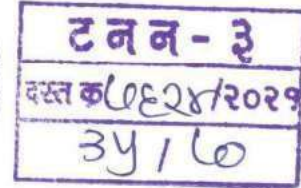 ट न न - ३
दस्त क्र७६२४/२०२१
३५ / ७०